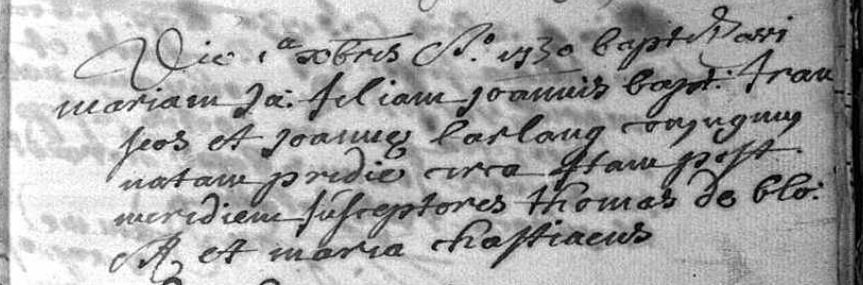 Die 1a xbris Ao 1730 baptizavi
mariam Ja: filiam joannis bapt: fran
seos et joannae barlang conjugum
natam pridie circa 4tam post
meridiem susceptores thomas de blo:
et maria chastiaens